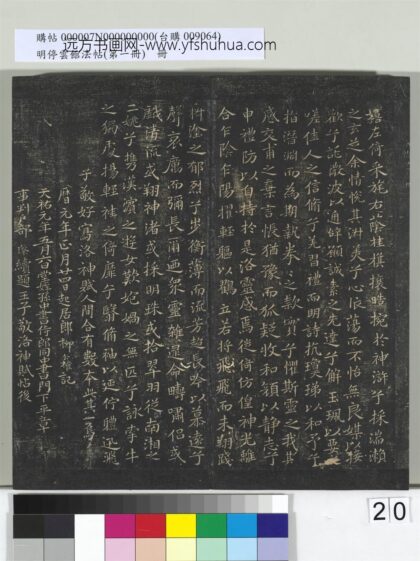 購帖 000007N000000000(台購 009064)
远方书画网-www.yfshuhua.com
明停雲館法帖(第一冊) 冊
嬉左倚采旄右蔭桂旗攘皓腕於神滸兮採湍瀨
之玄芝余情悅其淑美兮心振蕩而不怡無良媒以接
歡兮託微波以通辭願誠素之先達兮解玉珮以要之
嗟佳人之信脩兮羌習禮而明詩抗瓊珶以和予兮
指潛淵而為期執拳拳之款實兮懼斯靈之我欺
感交甫之棄言悵猶豫而狐疑收和顏以靜志兮
申禮防以自持於是洛靈感焉徙倚仿偟神光離
合乍陰乍陽擢輕軀以鶴立若將飛而未翔踐
椒塗之郁烈兮步衡薄而流芳超長吟以慕遠兮
聲哀厲而彌長爾迺衆靈雜遝命疇嘯侶或
戲清流或翔神渚或採明珠或拾翠羽從南湘之
二妃兮攜漢濱之遊女歎匏媧之無匹兮詠牽牛
之獨處揚輕袿之倚靡兮翳脩袖以延佇體迅飛
子敬好寫洛神賦人間合有數本此其一焉寶
曆元年正月廿四日起居郎柳公權記
天祐元年五月六日孫中書侍郎同中書門下平章
事判戶部璨續題王子敬洛神賦帖後
20